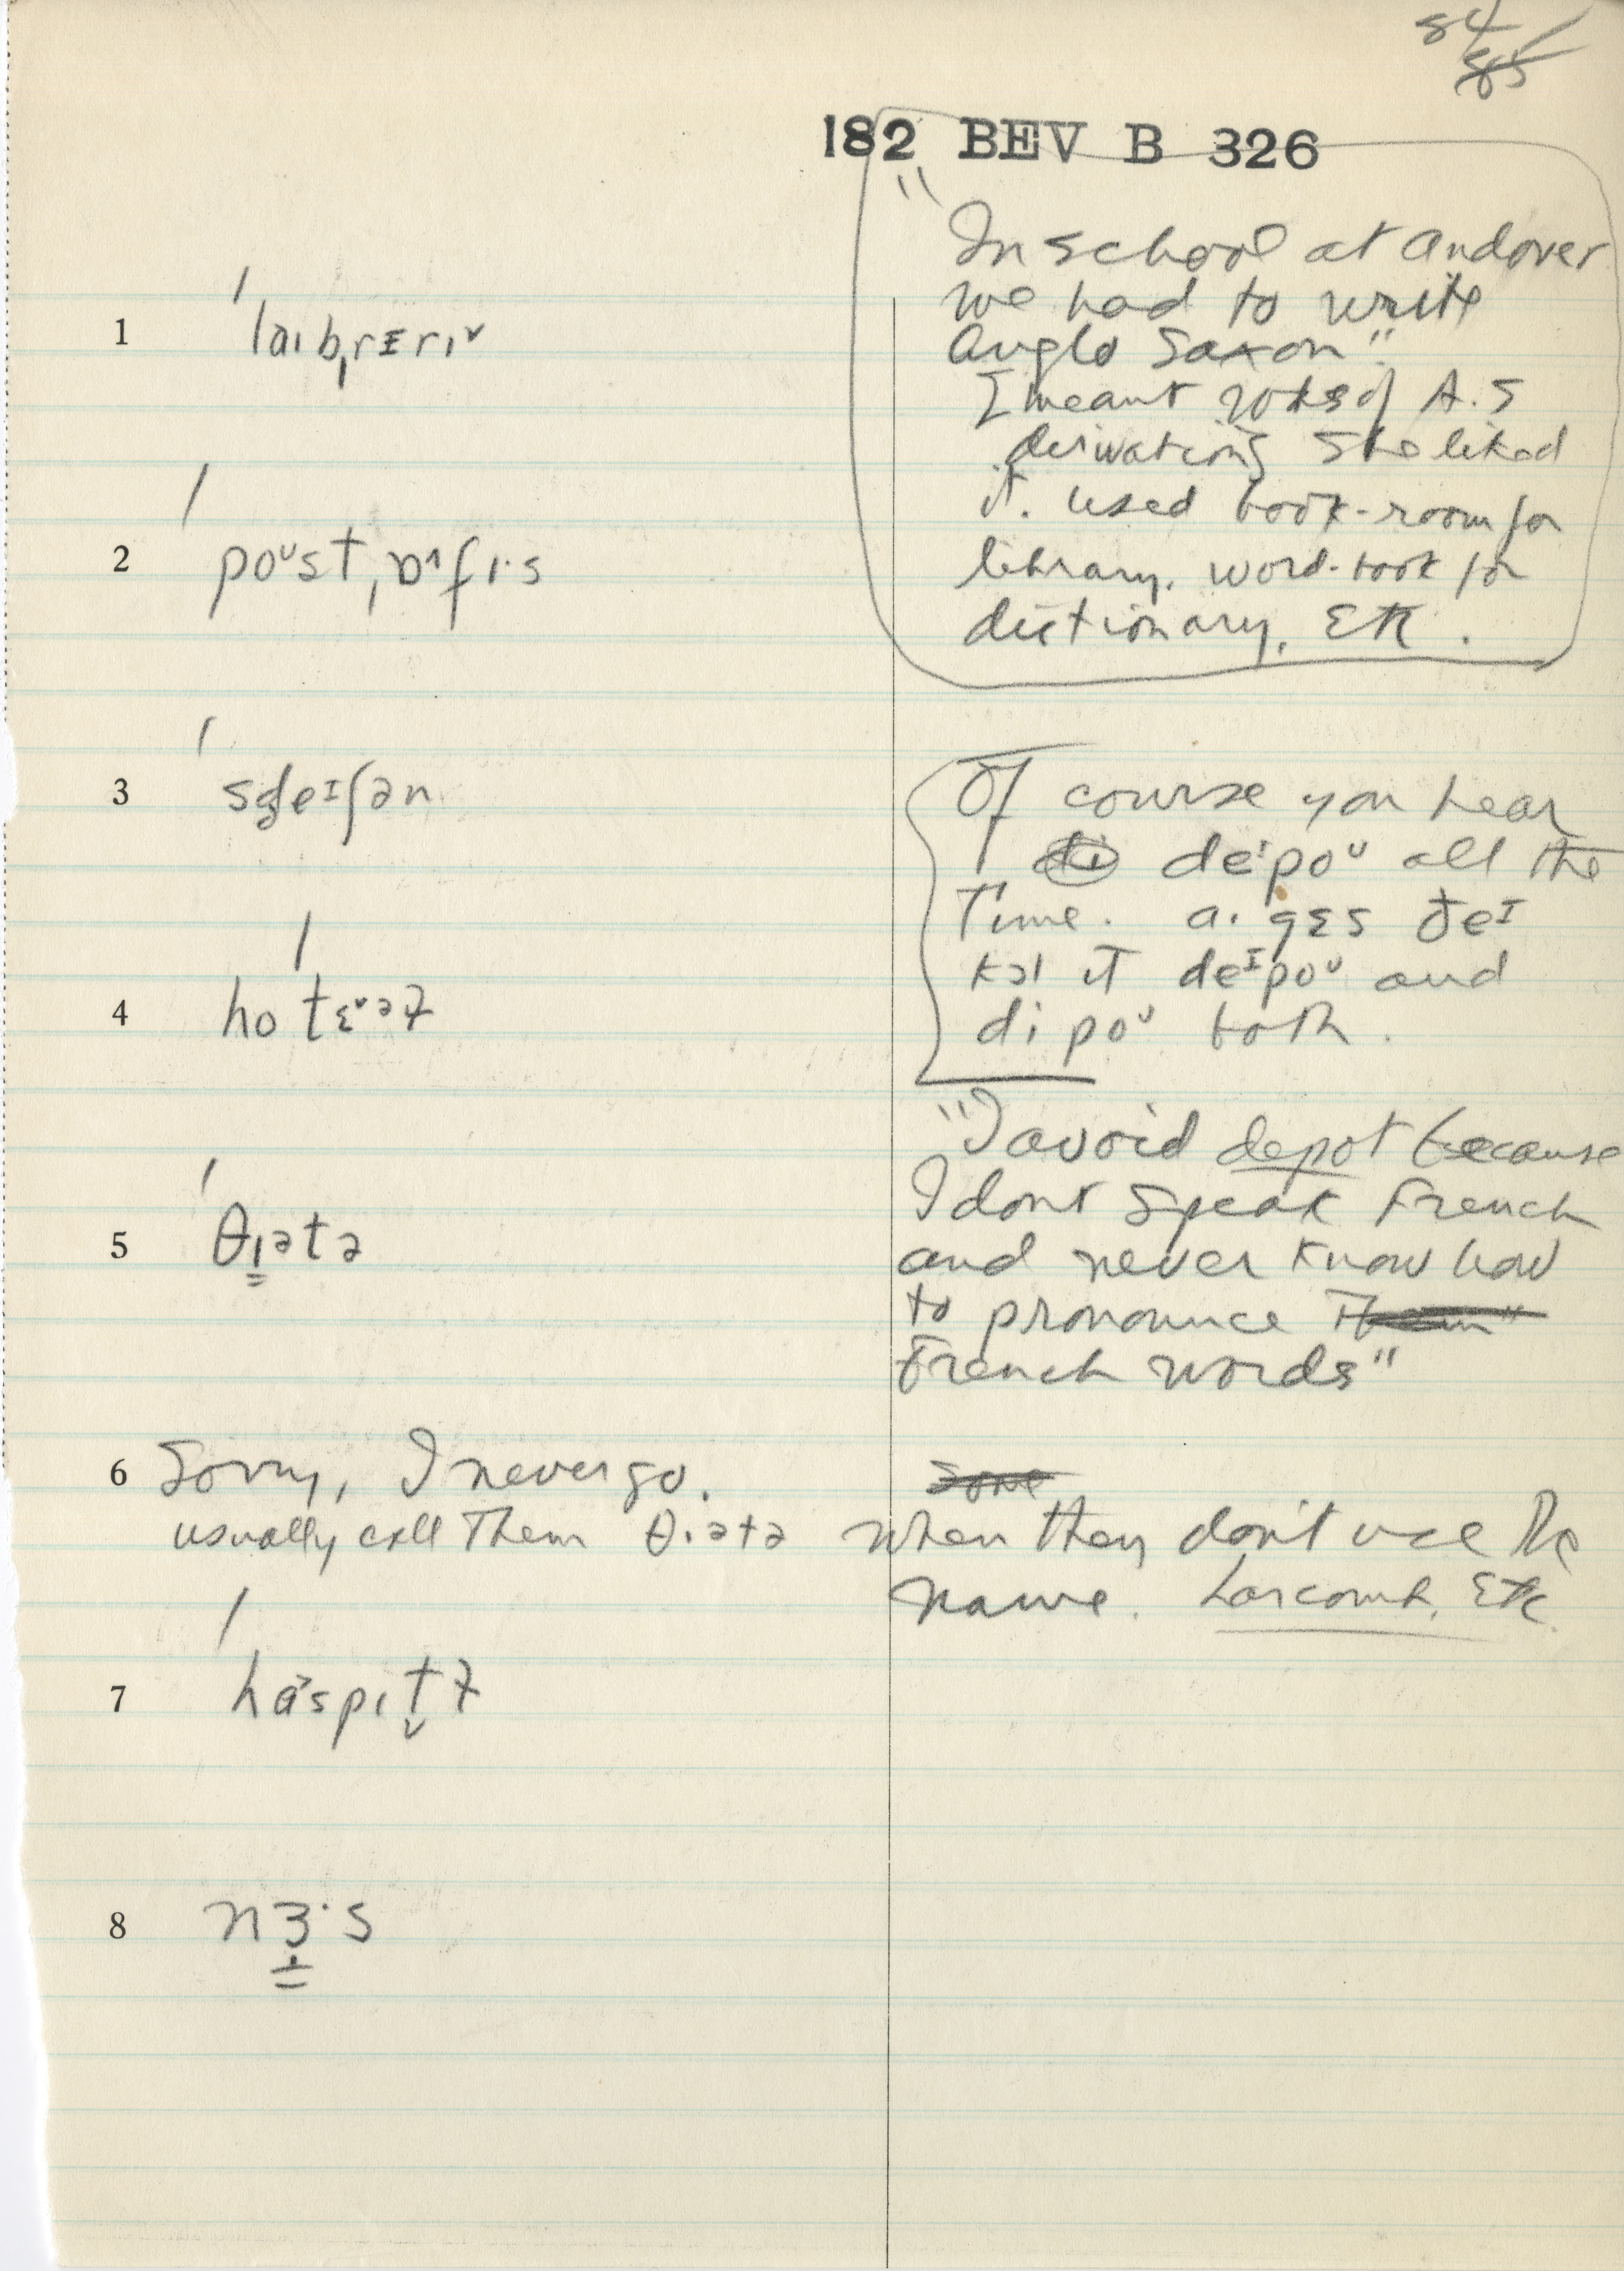 84
85
182 BEV B 326
"In school at Andover
we had to write
Anglo Saxon"
I meant words of A.S
derivation, She liked
it. used book-room for
library. word-book for
dictionary, Etc.
1 ˈlaɪbˌrɛrɪ˅
2 ˈpoᵘstˌɒ˄fɪ·s
Of course you hear
deˈpoᵘ all the
Time. a· gɛs ðeᴵ
kɔl it deᴵpoᵘ and
dipoᵘ both.
3
4 hoˈtɛ˅əɫ
"I avoid depot because
I dont speak French
and never know how
to pronounce
French words"
5 ˈθɪətə
6 Sorry, I never go.
Some
usually call Them θɪətə when they don't use the
name. Larcomb, Etc.
7 ˈhaspɪt̬ɫ
8 nɜ·s